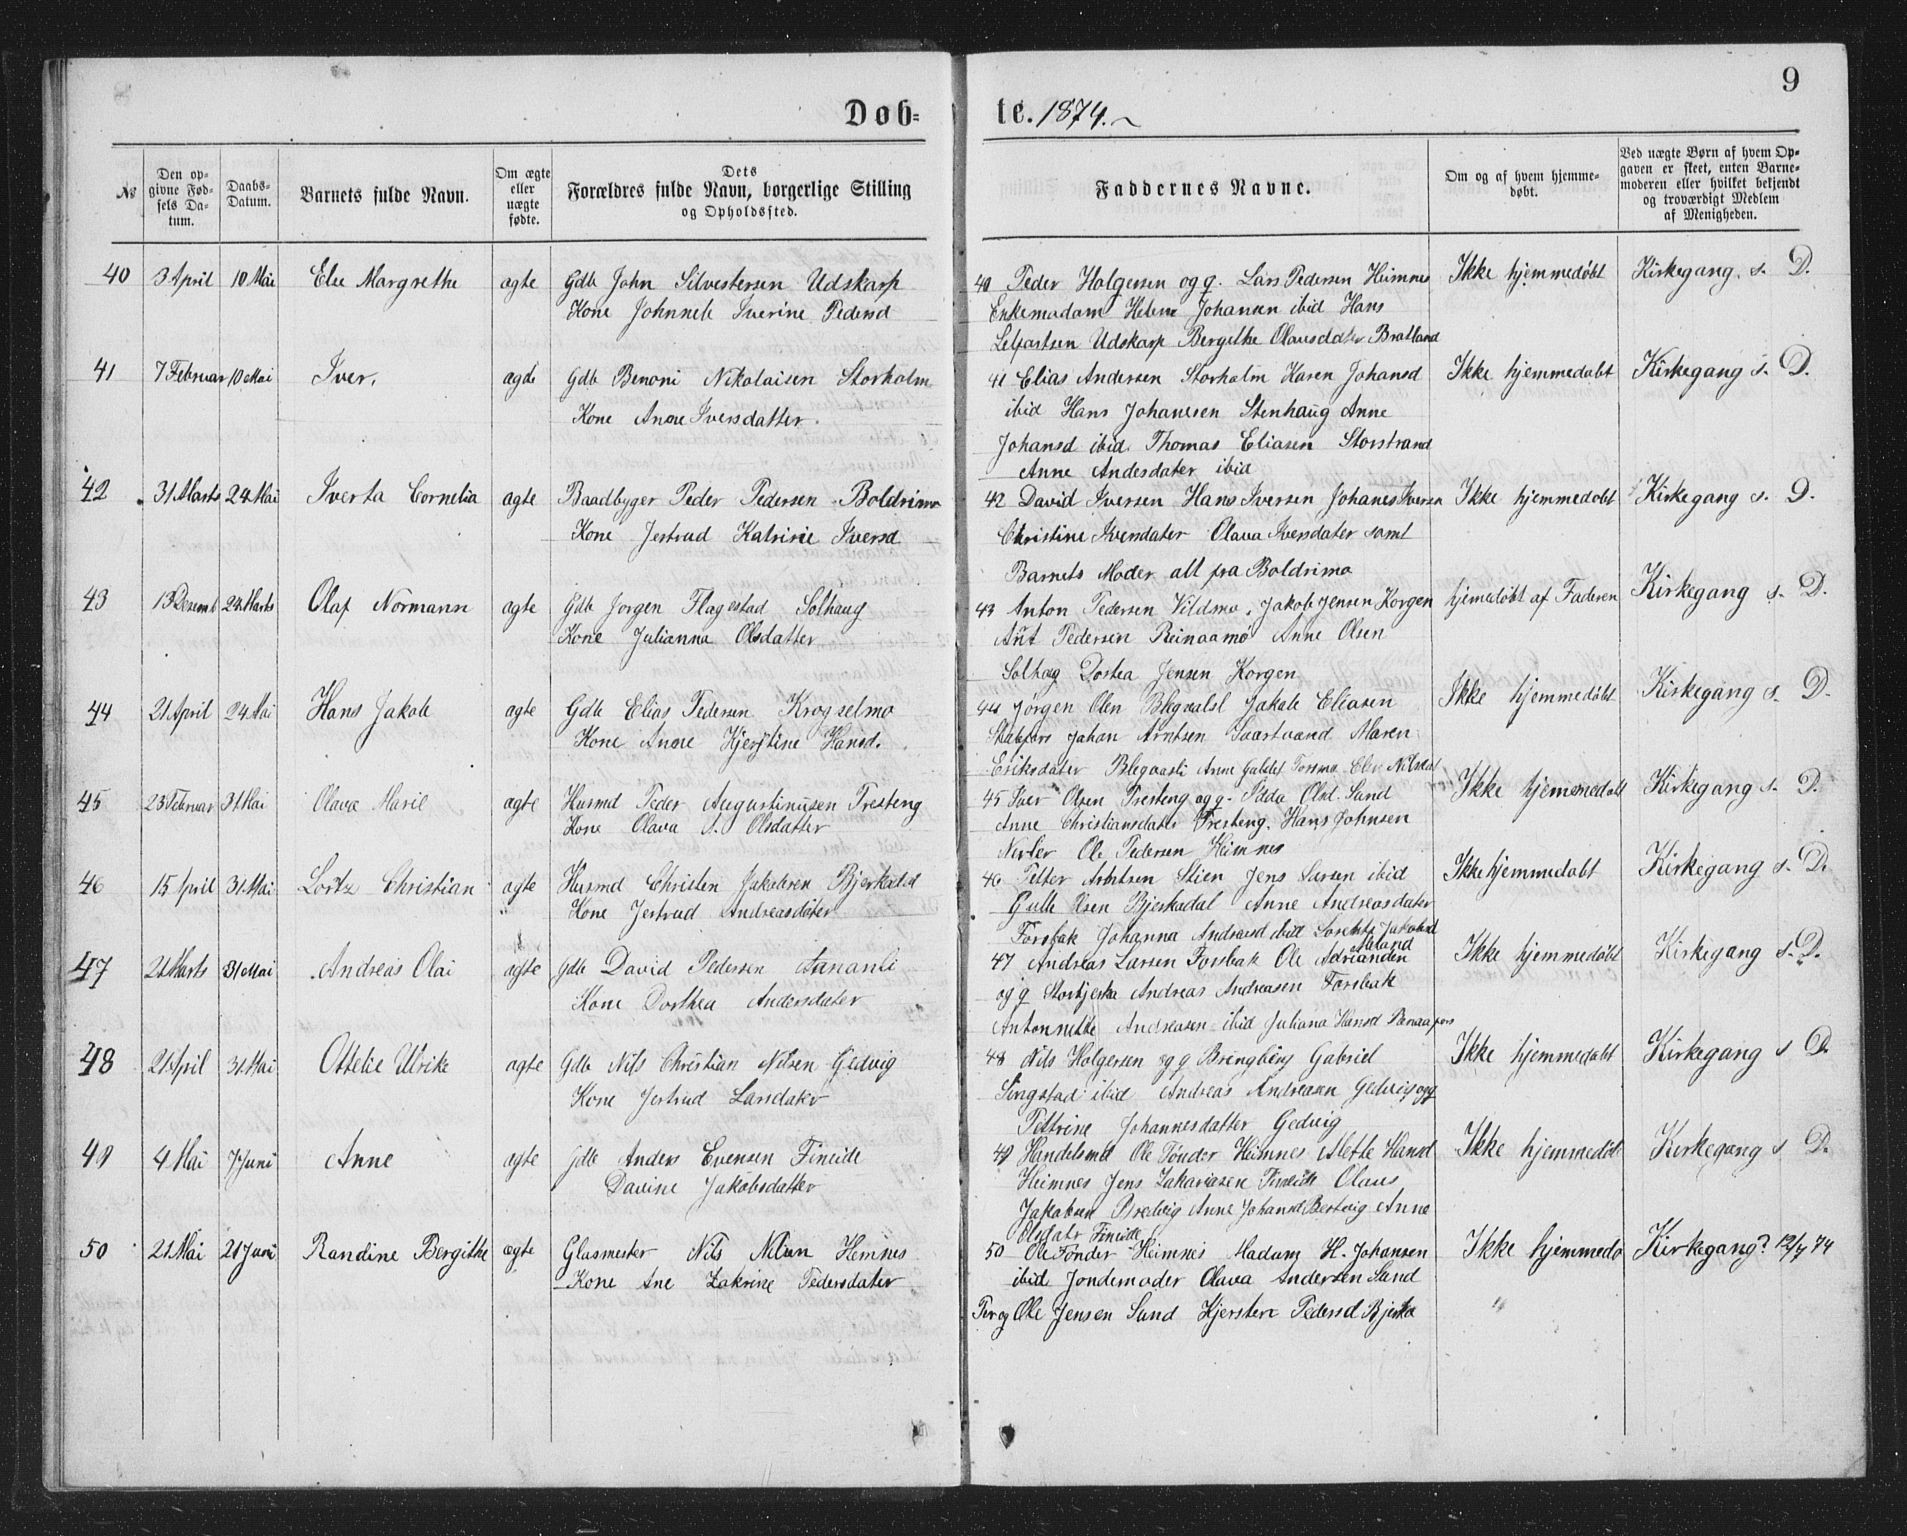 9
Døb-te. 1874.
No
Den opgivne Fødsels Datum.
Daabs-Datum.
Barnets fulde Navn.
Om ægte eller uægte fødte.
Dets Forældres fulde Navn, borgerlige Stilling og Opholdssted.
Faddernes Navne.
Om og af hvem hjemmedøbt.
Ved uægte Børn af hvem Opgaven er skeet, enten Barnemoderen eller hvilket bekjendt og troværdigt Medlem af Menigheden.
40 3 April 10 Mai Else Margrethe ægte Gdb John Silvestersen Udskarp
Kone Johnnele Iverine Pedersd
40 Peder Holgersen og g. Lars Pedersen Heimnes
Enkemadam Helene Johansen ibid Hans
Udskarp Bergithe Olausdater Bratland
Ikke hjemmedøbt Kirkegang s. D.
41 7 Februar 10 Mai Iver. ægte Gdb Benoni Nikolaisen Storholm
Kone Anne Iversdatter.
41 Elias Andersen Storholm Karen Johansd
ibid Hans Johansen Stenhaug Anne
Johansd ibid. Thomas Eliasen Storstrand
Anne Andesdater ibid
Ikke hjemmedøbt Kirkegang s. D.
42 31 Marts 24 Mai Iverta Cornelia ægte Baadbyger Peder Pedersen Boldrimo
Kone Jertrud Katrine Iversd
42 David Iversen Hans Iversen Johanes Iversen
Christine Iversdater Olava Iversdater samt
Barnets Moder alt fra Boldrimo
Ikke hjemmedøbt Kirkegang s. D.
43 13 Desemb 24 Marts Olaf Normann ægte Gdb Jørgen Flagestad Solhaug
Kone Julianna Olsdatter
43 Anton Pedersen Vildmo, Jakob Jensen Korgen
Ant Pedersen Reinaamo Anne Olsen
Solhag Dortea Jensen Korgen
hjemedøbt af Faderen Kirkegang s. D.
44 21 April 24 Mai Hans Jakob ægte Gdb Elias Pedersen Krogselmo
Kone Anne Kjerstine Hansd.
44 Jørgen Olen Jakob Eliasen
Johan Arntsen Svartvand Maren
Eriksdater Blegvasli Anne
Ikke hjemmedøbt Kirkegang s. D.
45 23 Februar 31 Mai Olava Marie ægte Husmd Peder Augustinusen Presteng
Kone Olava A. Olsdatter
45 Iver Olsen Presteng og g. Idda Olsd. Sand
Anne Christiansdater Presteng. Hans Johnsen
Ole Pedersen Heimnes
Ikke hjemmedøbt Kirkegang s. D.
46 15 April 31 Mai Christian ægte Husmd Christen Jakobsen Bjerkadal
Kone Jertrud Andreasdater
46 Petter Arntsen Stien Jens Larsen ibid
Bjerkadal Anne Andreasdater
Forsbak Johanna Andreasd ibid
Ikke hjemmedøbt Kirkegang s. D.
47 21 Marts 31 Mai Andreas Olai ægte Gdb David Pedersen
Kone Dorthea Andersdater
47 Andreas Larsen Forsbak Ole
og g Storbjerka Andreas Andreasen Forsbak
Antonnette Andreasen ibid Juliana Hansd
Ikke hjemmedøbt Kirkegang s. D.
48 2 April 31 Mai Ottelie Ulrike ægte Gdb Nils Christian Nilsen Gedvig
Kone Jertrud Larsdater
48 Nils Holgersen og g Bringberg Gabriel
ibid Andreas Andreasen Gedvig og g
Pettrine Johannesdatter Gedvig
Ikke hjemmedøbt Kirkegang s D.
49 4 Mai 7 Juni Anne ægte Gdb Anders Evensen Fineide
Davine Jakobsdatter
49 Handelsmd Ole Tønder Heimnes Mette Hansd
Heimnes Jens Zakariasen Fineide Olaus
Jakobsen Bredvig Anne Johansd Anne
Olsdatr Fineide
Ikke hjemmedøbt Kirkegang s D.
50 21 Mai 21 Juni Randine Bergithe ægte Glasmester Nils Nilsen Hemnes
Kone Ane Zakrine Pedersdater
50 Ole Tønder Heimnes Madam H. Johansen
ibid Jondemoder Olava Andersen Sand
Ole Jensen Sand Kjersten Pedersd Bjerka
Ikke hjemmedø Kirkegang? 12/7 74